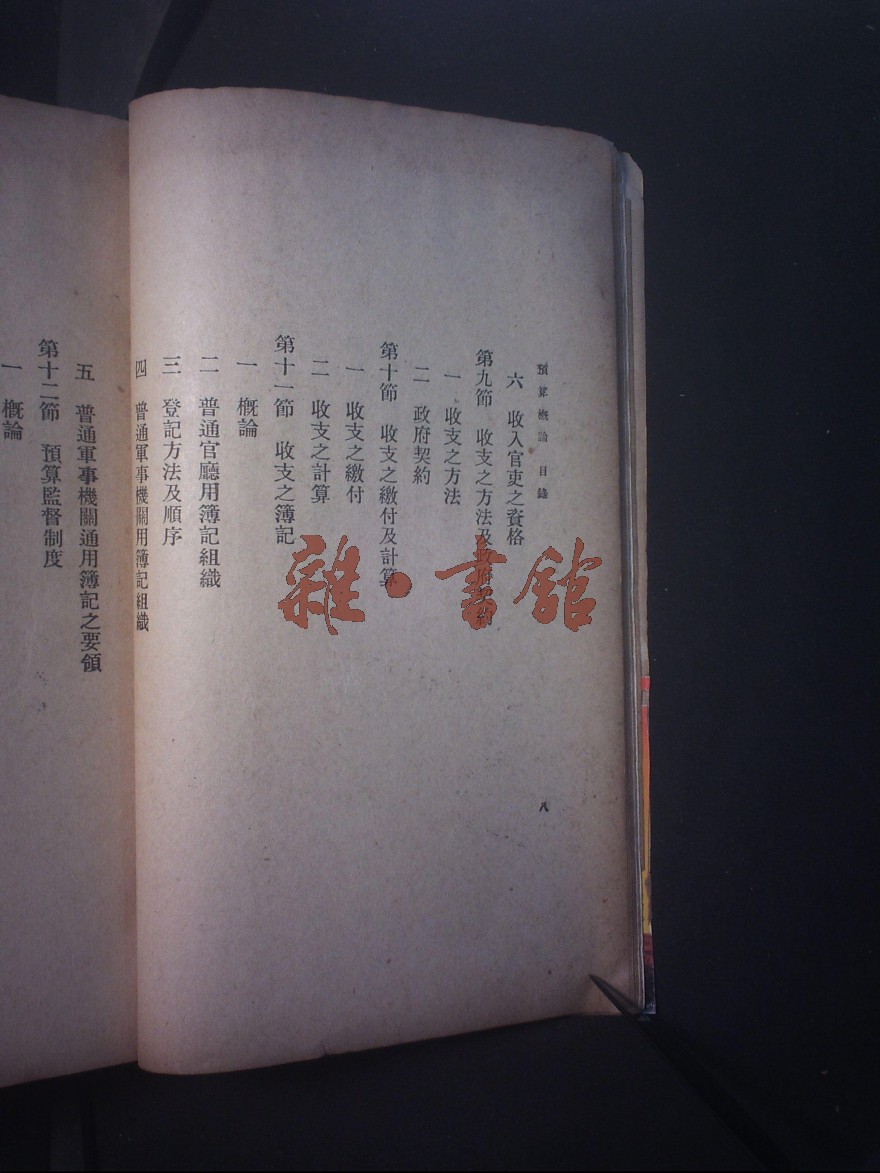 預算概論 目錄
六 收入官吏之資格
第九節 收支之方法及政府契約
一 收支之方法
二 政府契約
第十節 收支之繳付及計算
一 收支之繳付
二 收支之計算
第十一節 收支之簿記
一 概論
二 普通官廳用簿記組織
三 登記方法及順序
四 普通軍事機關用簿記組織
八
五 普通軍事機關通用簿記之要領
第十二節 預算監督制度
一 概論
雜·書館